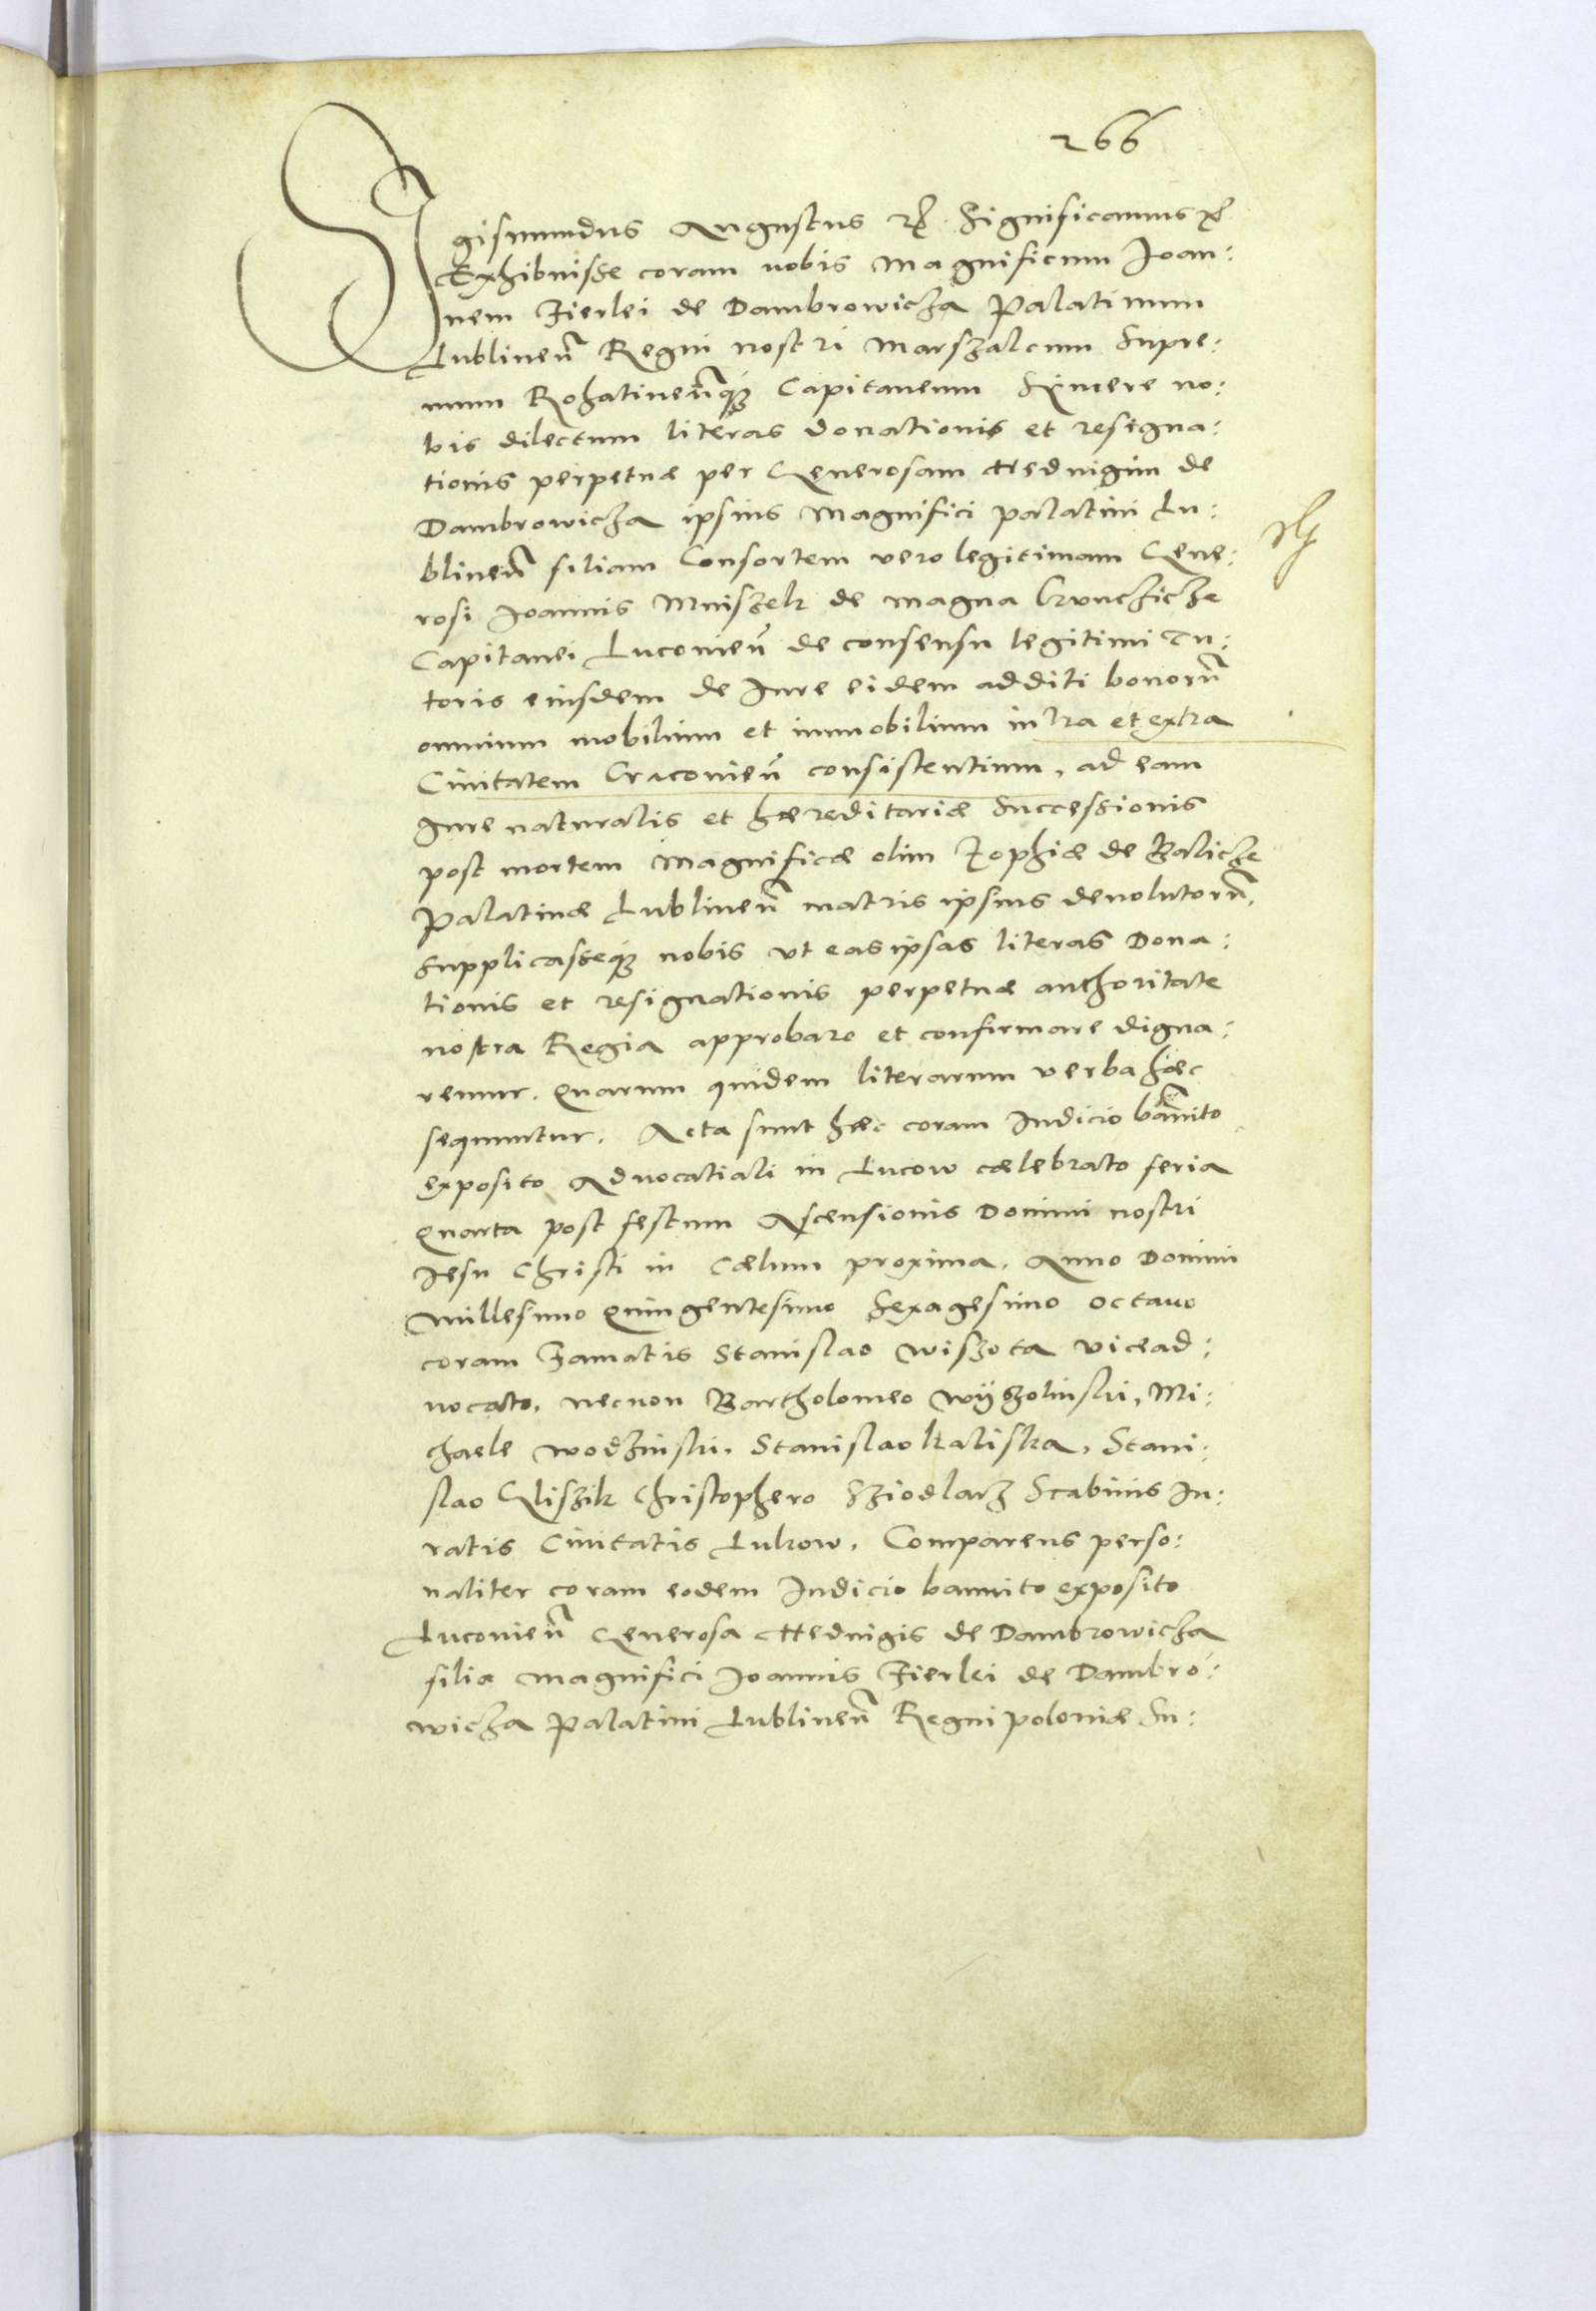 266
Sigismundus Augustus Rex Significamus etc
Exhibuisse coram nobis Magnificum Joan:
nem Fierlei de Dambrowicza Palatinum
Lublineñ Regni nostri Marszalcum Supre:
mum Rohatineñq3 Capitaneum Sÿncere no:
bis dilectum literas donationis et resigna:
tionis perpetuæ per Generosam Hedvigim de
Dambrowicza ipsius Magnifici palatini Lu:
blineñ filiam Consortem vero legitimam Gene:
rosi Joannis Mniszek de magna Kunczicze
Capitanei Luconieñ de consensu legitimi Tu:
toris eiusdem de Jure eidem additi bonorũ
omnium mobilium et immobilium intra et extra
Ciuitatem Cracovieñ consistentium, ad eam
Jure naturalis et hæreditariæ Successionis
post mortem Magnificæ olim Zophiæ de Balicze
Palatinæ Lublineñ matris ipsius deuolutorũ,
Supplicasseq3 nobis vt eas ipsas literas Dona:
tionis et resignationis perpetuæ authoritate
nostra Regia approbare et confirmare digna:
remur. Quarum quidem literarum verba hæc
sequuntur. Acta sunt hæc coram Judicio bãnito
exposito Aduocatiali in Lucow cælebrato feria
Quarta post festum Ascensionis Domini nostri
Jesu Christi in Cælum proxima, Anno Domini
Millesimo Quingentesimo Sexagesimo octauo
coram Famatis Stanislao Wiszota vicead:
uocato, necnon Bartholomeo Wÿszolinski, Mi:
chaele Wodzinski, Stanislao Kaliska, Stani:
slao Gliszik Christophero Sziodlarz Scabinis Ju:
ratis Ciuitatis Lukow. Comparens perso:
naliter coram eodem Judicio bannito exposito
Luconieñ Generosa Hedvigis de Dambrowicza
filia Magnifici Joannis Fierlei de Dambro:
wicza Palatini Lublineñ Regni poloniæ Su: